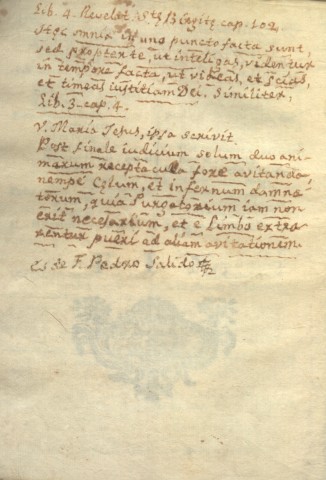 Lib. 4. Revelat. Stę Birgitę cap. 102.
Hęc omnia in uno puncto facta sunt,
sed propter te, ut inteligas, videntur
in tempore facta, ut videas, et scias,
et timeas iustitiam Dei. similiter,
Lib. 3. cap. 4.
V. Maria Jesus, ipsa scrivit.
Post finale iudicium solum duo ani-
marum receptaculla fore avitanda,
nempe Cęlum, et infernum damna-
torum, quia Purgatorium iam non
erit necesarium, et e Limbo extra-
hentur pueri ad aliam avitationem.
Es de F. Pedro Salido